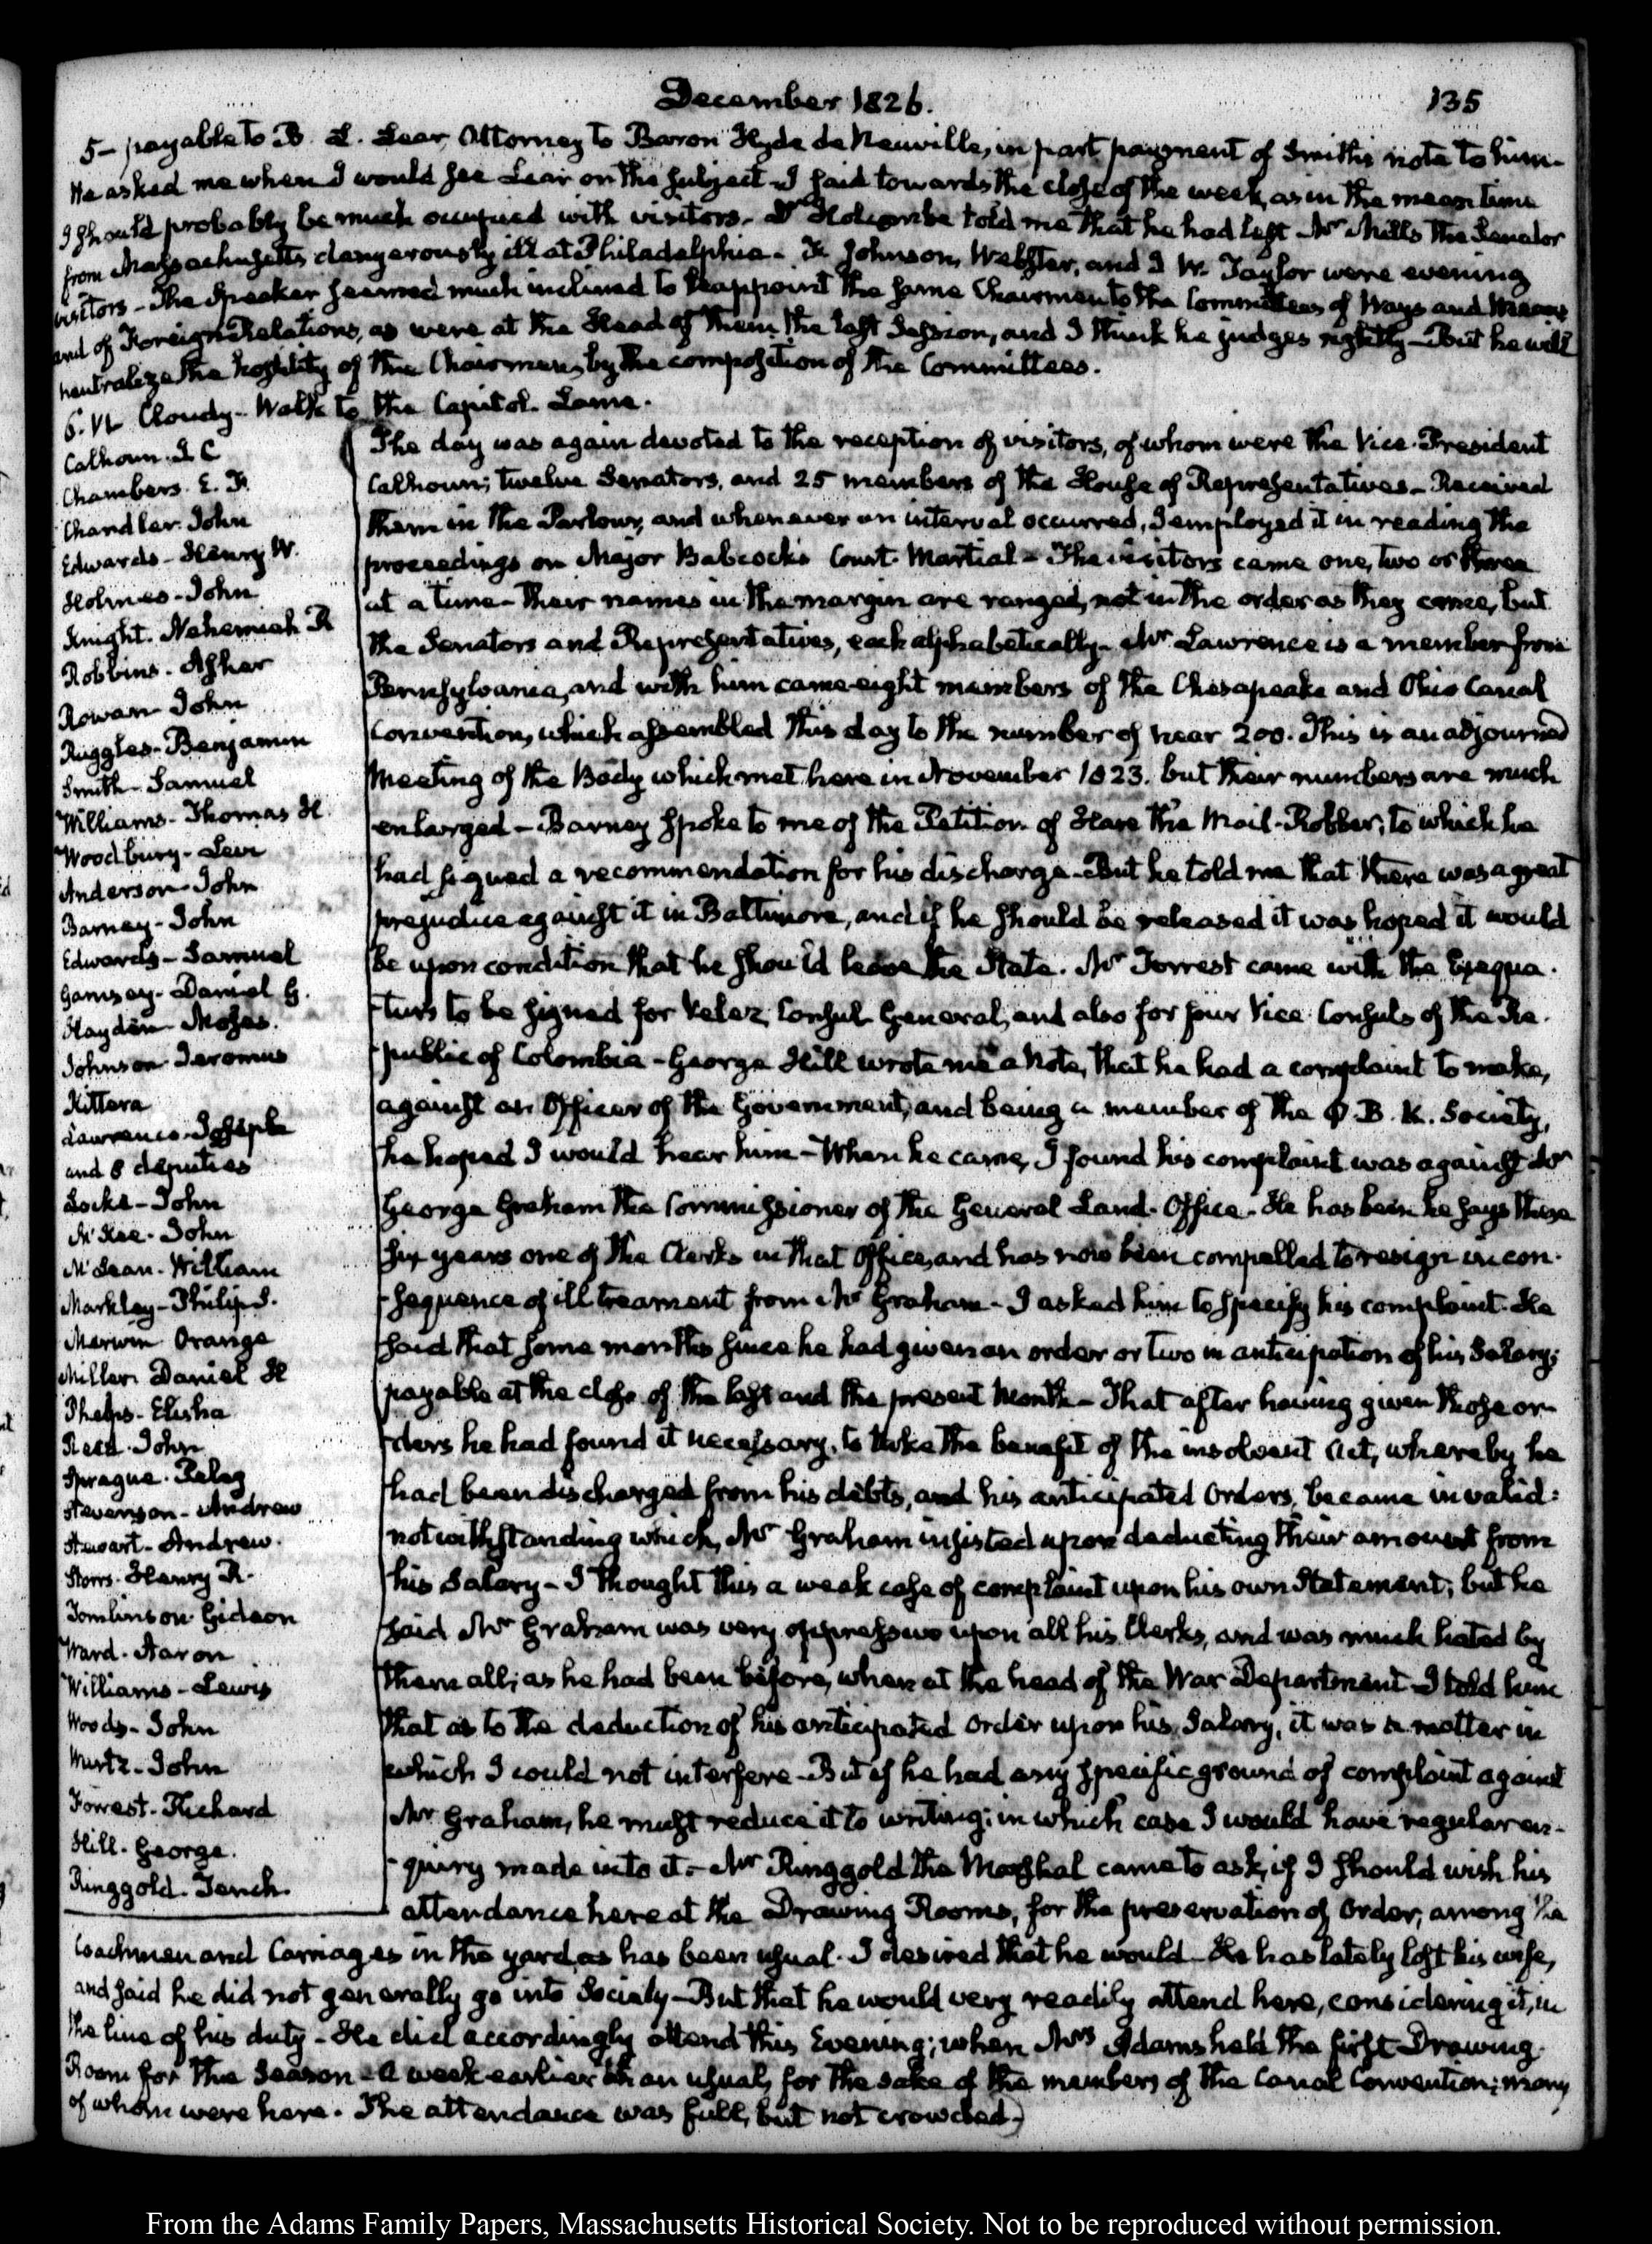 December 1826.
135
5– payable to B. L. Lear, Attorney to Baron Hyde de Neuville, in part payment of Smith's note to him–
He asked me when I would see Lear on the subject – I said towards the close of the week, as in the mean time
I should probably be much occupied with visitors. Dr Holcombe told me that he had left Mr Mills the Senator
from Massachusetts dangerously ill at Philadelphia. F. Johnson, Webster, and J W. Taylor were evening
visitors – The Speaker seemed much inclined to reappoint the same Chairmen to the Committees of Ways and Means
and of Foreign Relations, as were at the Head of them the last Session, and I think he judges rightly – But he will
neutralize the hostility of the Chairmen, by the composition of the Committees.
6. VI. Cloudy – Walk to the Capitol. Lame.
Calhoun. J. C
Chambers. E. F.
Chandler. John
Edwards – Henry W.
Holmes – John
Knight. Nehemiah R
Robbins. Asher
Rowan John
Ruggles – Benjamin
Smith – Samuel
Williams – Thomas H.
Woodbury – Levi
Anderson John
Barney – John
Edwards – Samuel
Garnsey – Daniel G.
Hayden – Moses.
Johnson Jeromus
Kittera
Lawrence. Joseph
and 8 deputies
Locke – John
McKee. John
McLean. William
Markley – Philip S.
Marwin Orange
Miller Daniel H
Phelps – Elisha
Reed. John
Sprague. Peleg
Stevenson – Andrew
Stewart – Andrew.
Storrs. Henry R.
Tomlinson Gideon
Ward. Aaron
Williams – Lewis
Woods – John
Wurtz – John
Forrest. Richard
Hill. George.
Ringgold. Tench.
The day was again devoted to the reception of visitors, of whom were the Vice-President
Calhoun; twelve Senators, and 25 members of the House of Representatives – Received
them in the Parlour, and whenever an interval occurred, I employed it in reading the
proceedings on Major Babcock's Court-Martial – The visitors came one, two or three
at a time – their names in the margin are ranged, not in the order as they came, but
the Senators and Representatives, each alphabetically. Mr Lawrence is a member from
Pennsylvania, and with him came eight members of the Chesapeake and Ohio Canal
Convention, which assembled this day to the number of near 200. This is an adjourned
meeting of the Body which met here in November 1823. but their numbers are much
enlarged – Barney spoke to me of the Petition of Hare the Mail-Robber; to which he
had signed a recommendation for his discharge – But he told me that there was a great
prejudice against it in Baltimore, and if he should be released it was hoped it would
be upon condition that he should leave the State. Mr Forrest came with the Exequa-
turs to be signed for Velez, Consul General, and also for four Vice-Consuls of the Re-
public of Colombia – George Hill wrote me a Note, that he had a complaint to make,
against an Officer of the Government, and being a member of the Φ. B. K. Society,
he hoped I would hear him – When he came, I found his complaint was against Mr
George Graham the Commissioner of the General Land-Office – He has been he says these
six years one of the Clerks in that Office, and has now been compelled to resign in con-
sequence of ill treament from Mr Graham – I asked him to specify his complaint. He
said that some months since he had given an order or two in anticipation of his Salary;
payable at the close of the last and the present Month – That after having given those or-
ders he had found it necessary, to take the benefit of the insolvent Act, whereby he
had been discharged from his debts, and his anticipated Orders, became invalid:
notwithstanding which, Mr Graham insisted upon deducting their amount from
his Salary – I thought this a weak case of complaint upon his own Statement; but he
said Mr Graham was very oppressive upon all his Clerks, and was much hated by
them all; as he had been before, when at the head of the War Department – I told him
that as to the deduction of his anticipated order upon his Salary, it was a matter in
which I could not interfere – But if he had any specific ground of complaint against
Mr Graham, he must reduce it to writing; in which case I would have regular en-
quiry made into it – Mr Ringgold the Marshal came to ask, if I should wish his
attendance here at the Drawing Rooms, for the preservation of order, among the
Coachmen and Carriages in the yard as has been usual. I desired that he would – He has lately lost his wife,
and said he did not generally go into Society – But that he would very readily attend here, considering it, in
the line of his duty – He did accordingly attend this Evening; when Mrs Adams held the first Drawing
Room for the Season – A week earlier than usual, for the sake of the members of the Canal Convention; many
of whom were here. The attendance was full, but not crowded.
From the Adams Family Papers, Massachusetts Historical Society. Not to be reproduced without permission.